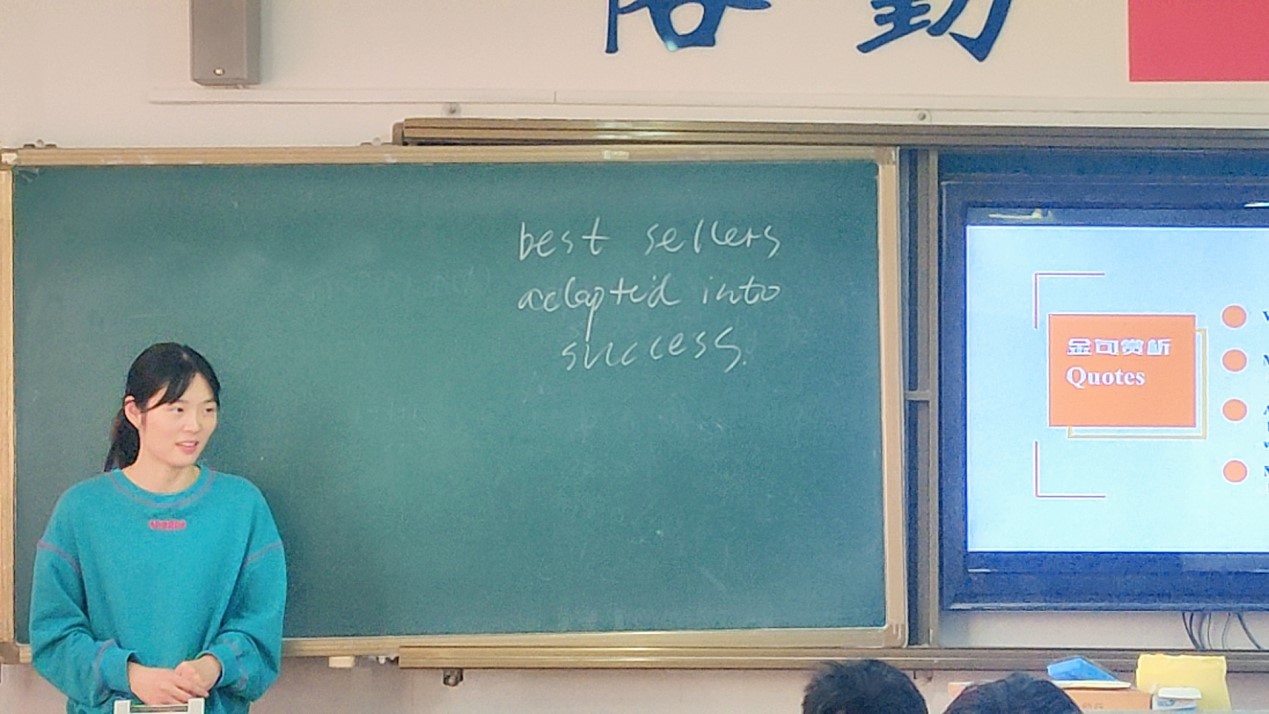 best sellers
adapted into
success.
金句赏析
Quotes